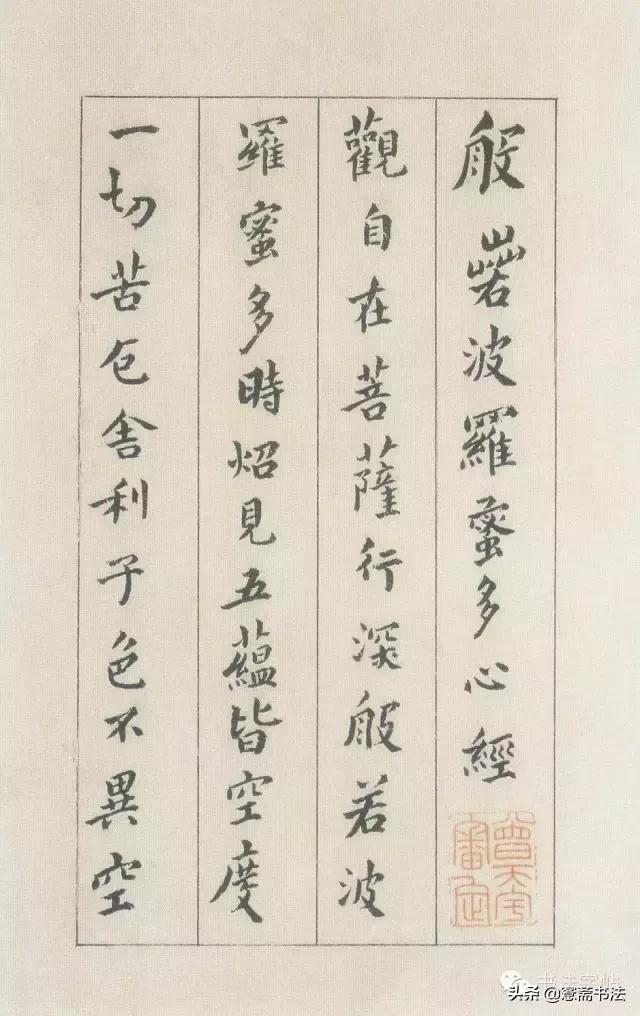 般若波羅蜜多心經
觀自在菩薩行深般若波
羅蜜多時炤見五蘊皆空度
一切苦厄舍利子色不異空
书法字帖
头条 @斋书法